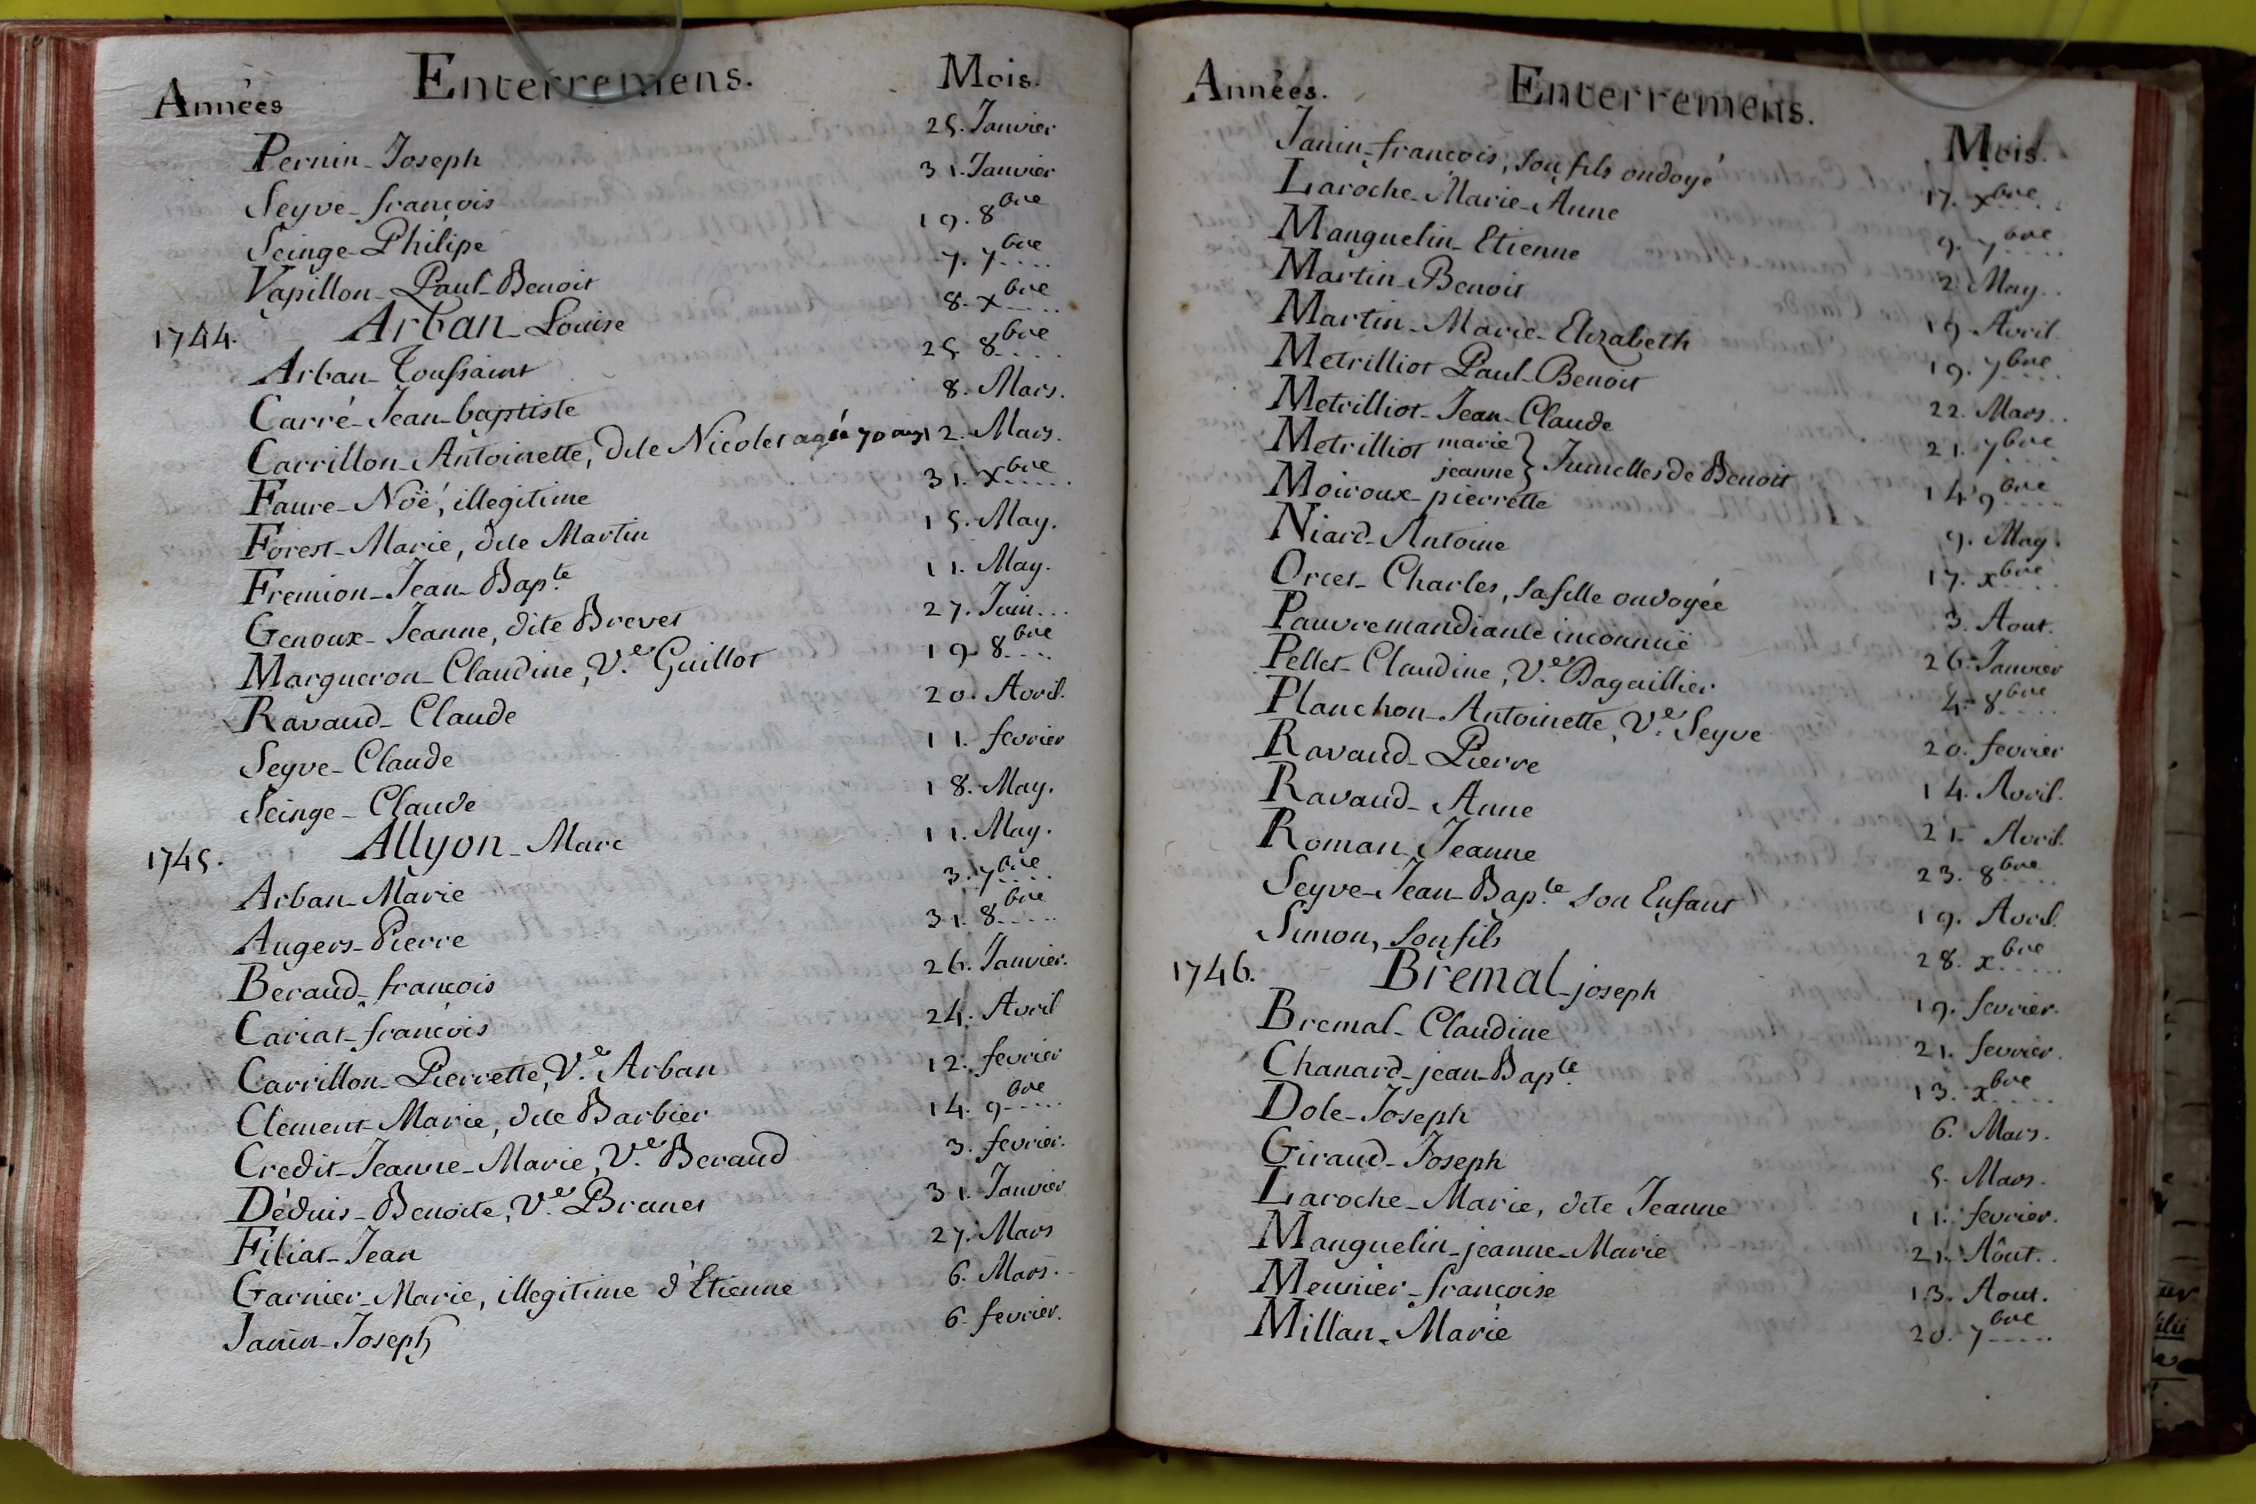 Années Enterremens. Mois.
Pernin - Joseph 25. Janvier
Seyve - françois 31. Janvier
Seinge - Philipe 19. 8bre
Vapillon - Paul - Benoit 7. 7bre....
1744. Arban - Louise 8. xbre....
Arban - Toussaint 25. 8bre....
Carré - Jean - baptiste 8. Mars.
Carrillon - Antoinette, dite Nicolet agée 70 ans 12. Mars.
Faure - Noë, illegitime 31. xbre....
Forest - Marie, dite Martin 15. May.
Fremion - Jean - Bapte. 11. May.
Genoux - Jeanne, dite Brevet 27. Juin...
Margueron - Claudine, Ve. Guillot 19. 8bre....
Ravaud - Claude 20. Avril.
Seyve - Claude 11. fevrier
Seinge - Claude 18. May.
1745. Allyon - Marc 11. May.
Arban - Marie 3. 7bre....
Augers - Pierre 31. 8bre....
Beraud - françois 26. Janvier.
Cariat - françois 24. Avril
Carrillon - Pierrette, Ve. Arban 12. fevrier
Clement - Marie, dite Barbier 14. 9bre....
Credit - Jeanne - Marie, Ve. Beraud 3. fevrier.
Déduis - Benoite, Ve. Branet 31. Janvier
Filiat - Jean 27. Mars
Garnier - Marie, illegitime d'Etienne 6. Mars.
Janin - Joseph 6. fevrier.
Années. Enterremens. Mois.
Janin - francois, son fils ondoyé 17. xbre....
Laroche - Marie - Anne 9. 7bre....
Manguelin - Etienne 2. May..
Martin - Benoit 19. Avril.
Martin - Marie - Elizabeth 19. 7bre....
Metrilliot Paul - Benoit 22. Mars..
Metrilliot - Jean - Claude 21. 7bre....
Metrilliot marie
jeanne } Jumelles de Benoit 14. 9bre....
Moiroux - pierrette 9. May.
Niard - Antoine 17. xbre....
Orcet - Charles, sa fille ondoyée 3. Aout.
Pauvre mandiante inconnuë 26. Janvier
Pellet - Claudine, Ve. Dagaillier 4. 8bre....
Planchon - Antoinette, Ve. Seyve 20. fevrier
Ravaud - Pierre 14. Avril.
Ravaud - Anne 21. Avril.
Roman - Jeanne 23. 8bre....
Seyve - Jean - Bapte. son Enfant 19. Avril.
Simon, son fils 28. xbre....
1746. Bremal - joseph 19. fevrier.
Bremal - Claudine 21. fevrier.
Chanard - jean - Bapte. 13. xbre....
Dole - Joseph 6. Mars.
Giraud - Joseph 5. Mars.
Laroche - Marie, dite Jeanne 11. fevrier.
Manguelin - jeanne - Marie 21. Aôut..
Meunier - francoise 13. Aout.
Millan - Marie 20. 7bre....